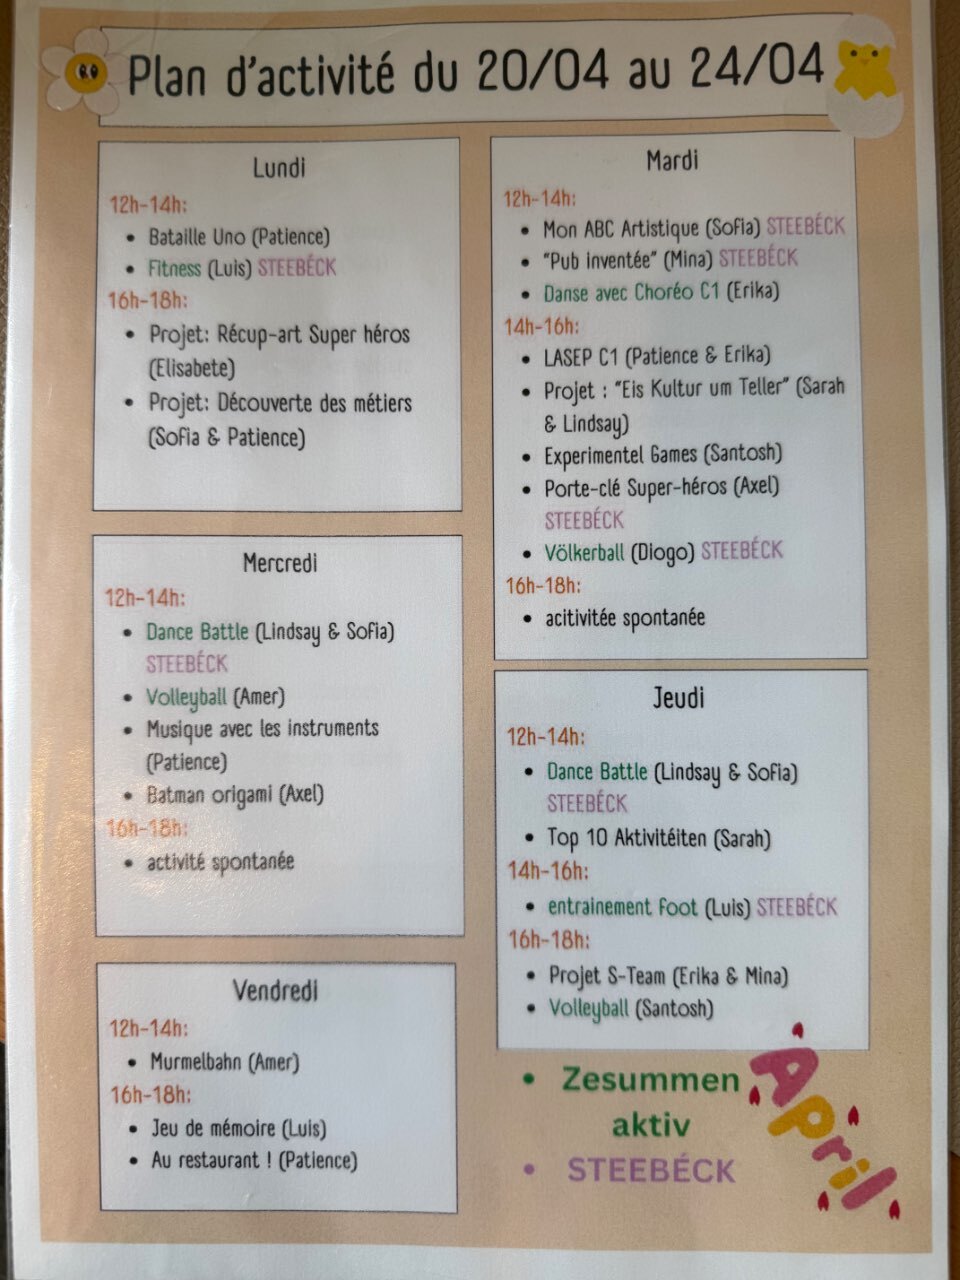 Plan d'activité du 20/04 au 24/04
Lundi
12h-14h:
• Bataille Uno (Patience)
• Fitness (Luis) STEEBÉCK
16h-18h:
• Projet: Récup-art Super héros
(Elisabete)
• Projet: Découverte des métiers
(Sofia & Patience)
Mardi
12h-14h:
• Mon ABC Artistique (Sofia) STEEBÉCK
• "Pub inventée" (Mina) STEEBÉCK
• Danse avec Choréo C1 (Erika)
14h-16h:
• LASEP C1 (Patience & Erika)
• Projet : "Eis Kultur um Teller" (Sarah
& Lindsay)
• Experimentel Games (Santosh)
• Porte-clé Super-héros (Axel)
STEEBÉCK
• Völkerball (Diogo) STEEBÉCK
16h-18h:
• acitivitée spontanée
Mercredi
12h-14h:
• Dance Battle (Lindsay & Sofia)
STEEBÉCK
• Volleyball (Amer)
• Musique avec les instruments
(Patience)
• Batman origami (Axel)
16h-18h:
• activité spontanée
Jeudi
12h-14h:
• Dance Battle (Lindsay & Sofia)
STEEBÉCK
• Top 10 Aktivitéiten (Sarah)
14h-16h:
• entrainement foot (Luis) STEEBÉCK
16h-18h:
• Projet S-Team (Erika & Mina)
• Volleyball (Santosh)
Vendredi
12h-14h:
• Murmelbahn (Amer)
16h-18h:
• Jeu de mémoire (Luis)
• Au restaurant ! (Patience)
• Zesummen
aktiv
• STEEBÉCK
April